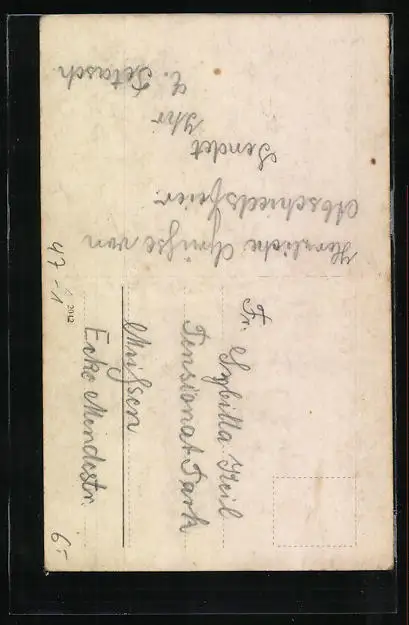 Herzliche Grüße von
Abschiedsfeier
Sendet
Ihr
Fr. Sybilla Keil
Pensionat Park
Meißen
Ecke Mendestr.
2912
47-1
6.-